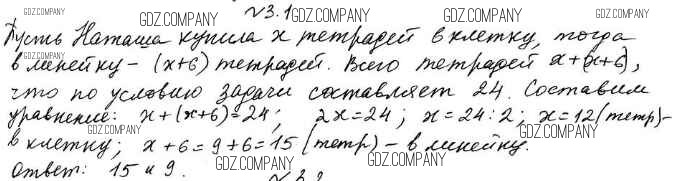 №3.1
Пусть Наташа купила x тетрадей в клетку, тогда
в линейку - (x+6) тетрадей. Всего тетрадей x+(x+6),
что по условию задачи составляет 24. Составим
уравнение: x+(x+6)=24; 2x=24; x=24:2; x=12(тетр)-
в клетку; x+6=9+6=15 (тетр) - в линейку.
Ответ: 15 и 9.
GDZ.COMPANY
GDZ.COMPANY
GDZ.COMPANY
GDZ.COMPANY
GDZ.COMPANY
GDZ.COMPANY
GDZ.COMPANY
GDZ.COMPANY
GDZ.COMPANY
GDZ.COMPANY
GDZ.COMPANY